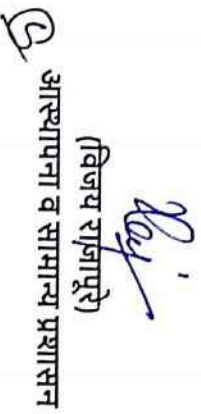 (विजय राजापूरे)
आस्थापना व सामान्य प्रशासन